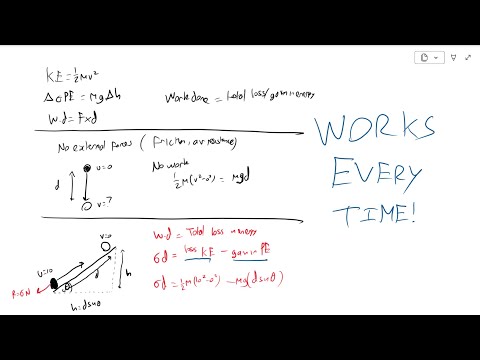 KE = ½mv²
ΔGPE = mgΔh
W.d = F×d
Work done = total loss/gain in energy
No external forces (friction, air resistance)
v=0
d
v=?
No work
½m(v²-0²) = mgd
WORKS
EVERY
TIME!
v=0
U=10
R=6N
θ
d
h
h=dsinθ
W.d = Total loss in energy
6d = loss KE - gain in PE
6d = ½m(10²-0²) - mg(dsinθ)